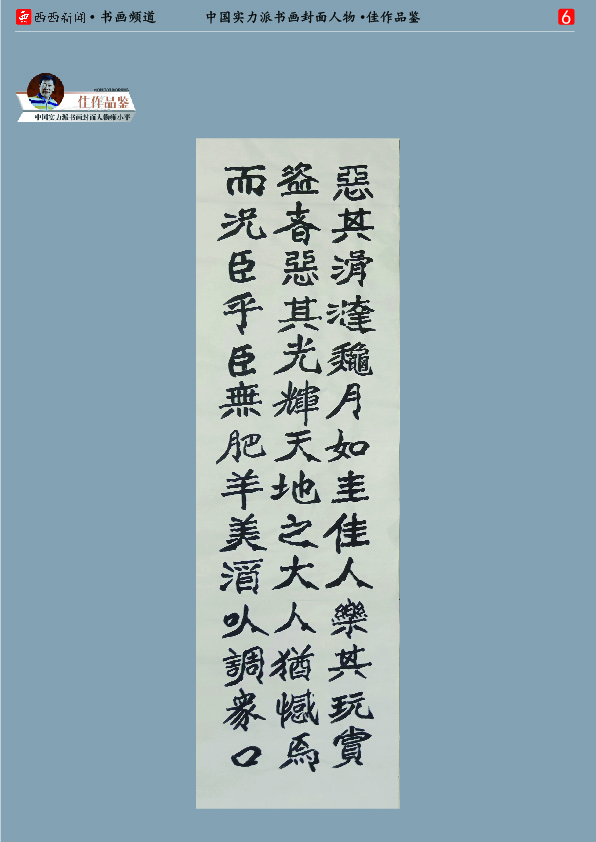 西 西西新闻·书画频道 中国实力派书画封面人物·佳作品鉴 6
佳作品鉴
中国实力派书画封面人物 小平
惡其滑澾龝月如圭佳人樂其玩賞
盜者惡其光輝天地之大人猶憾焉
而况臣乎臣無肥羊美酒以調衆口